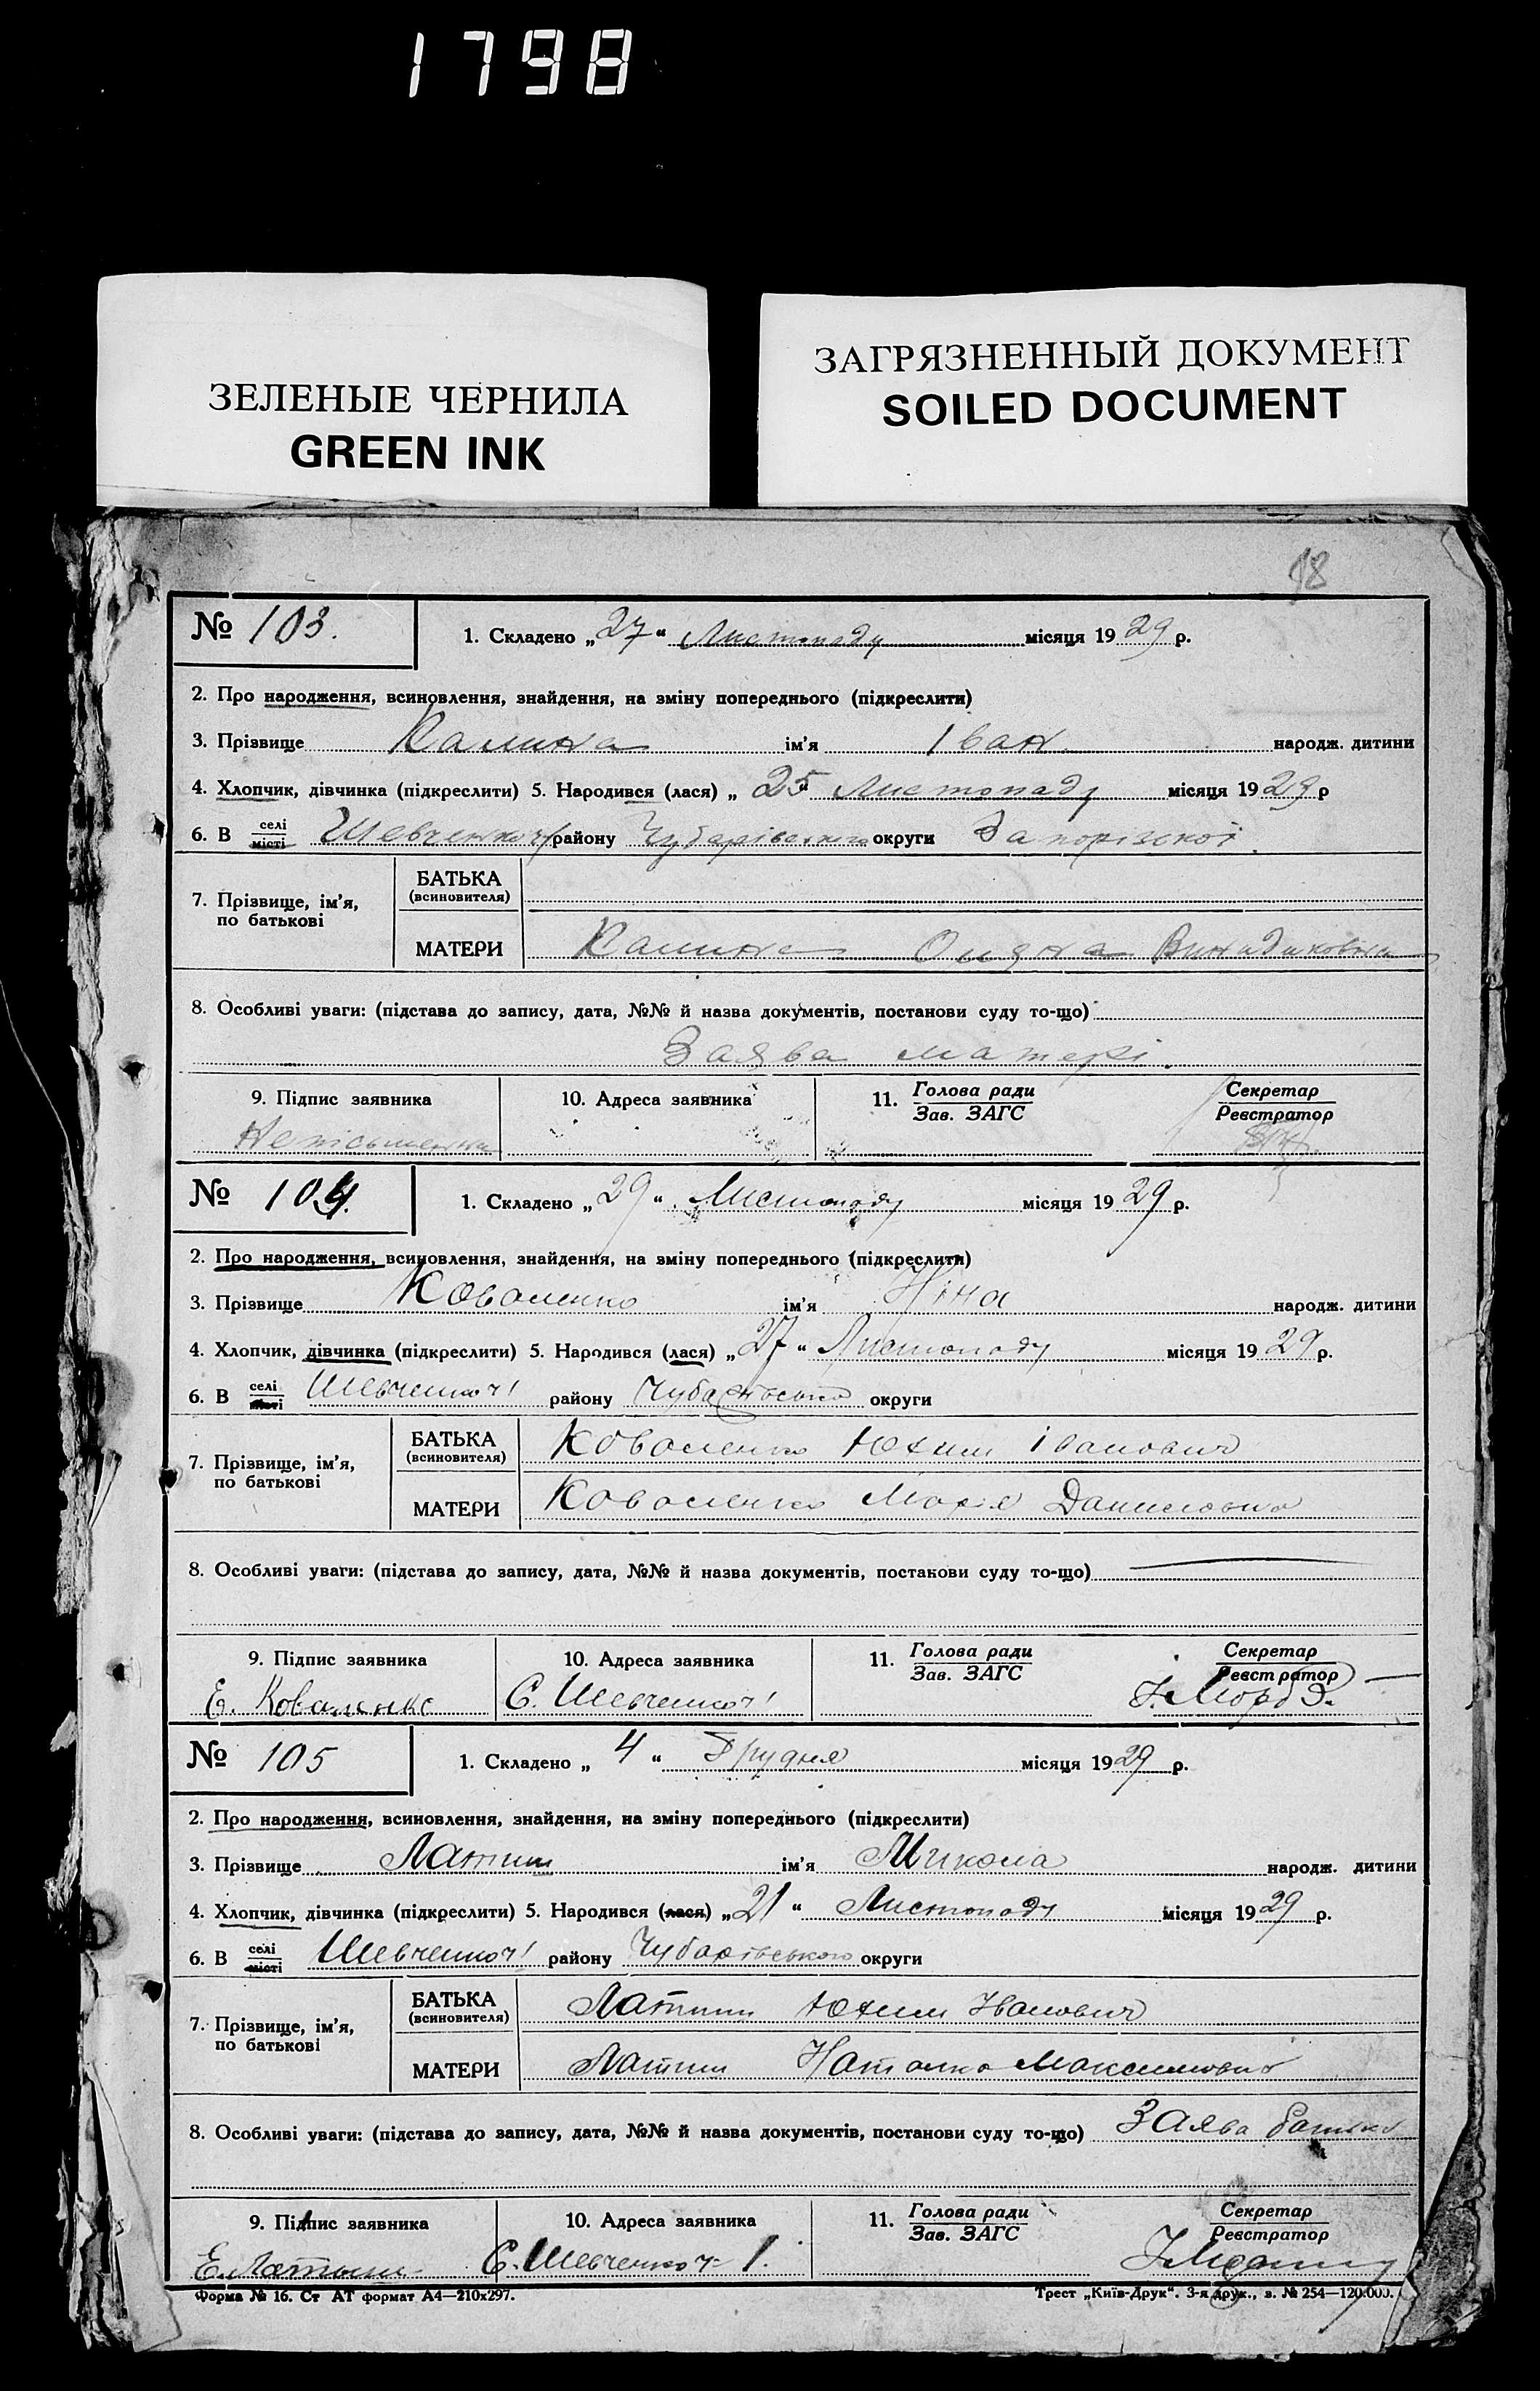 1798
ЗЕЛЕНЫЕ ЧЕРНИЛА
GREEN INK
ЗАГРЯЗНЕННЫЙ ДОКУМЕНТ
SOILED DOCUMENT
18
№ 103. 1. Складено „27“ Листопаду місяця 1929 р.
2. Про народження, всиновлення, знайдення, на зміну попереднього (підкреслити)
3. Прізвище Калина ім'я Іван народж. дитини
4. Хлопчик, дівчинка (підкреслити) 5. Народився (лася) „25“ Листопаду місяця 1929 р
6. В селі місті району Чубарівського округи Запорізької.
7. Прізвище, ім'я, по батькові БАТЬКА (всиновителя)
МАТЕРИ Калина
8. Особливі уваги: (підстава до запису, дата, №№ й назва документів, постанови суду то-що)
Заява матері.
9. Підпис заявника 10. Адреса заявника 11. Голова ради Зав. ЗАГС Секретар Реєстратор
Неписьменна
№ 104. 1. Складено „29“ Листопаду місяця 1929 р.
2. Про народження, всиновлення, знайдення, на зміну попереднього (підкреслити)
3. Прізвище Коваленко ім'я Ніна народж. дитини
4. Хлопчик, дівчинка (підкреслити) 5. Народився (лася) „27“ Листопаду місяця 1929 р.
6. В селі місті району округи
7. Прізвище, ім'я, по батькові БАТЬКА (всиновителя) Коваленко Юхим Іванович
МАТЕРИ Коваленко Марія Даниловна
8. Особливі уваги: (підстава до запису, дата, №№ й назва документів, постанови суду то-що)
9. Підпис заявника 10. Адреса заявника 11. Голова ради Зав. ЗАГС Секретар Реєстратор
Е. Коваленко С.
№ 105 1. Складено „4“ Грудня місяця 1929 р.
2. Про народження, всиновлення, знайдення, на зміну попереднього (підкреслити)
3. Прізвище Латиш ім'я Микола народж. дитини
4. Хлопчик, дівчинка (підкреслити) 5. Народився (лася) „21“ Листопаду місяця 1929 р.
6. В селі місті району Чубарівського округи
7. Прізвище, ім'я, по батькові БАТЬКА (всиновителя) Латиш Юхим Іванович
МАТЕРИ Латиш Наталка Максимовна
8. Особливі уваги: (підстава до запису, дата, №№ й назва документів, постанови суду то-що) Заява батька
9. Підпис заявника 10. Адреса заявника 11. Голова ради Зав. ЗАГС Секретар Реєстратор
Е. Латыш С.
Форма № 16. Ст АТ формат А4—210х297. Трест „Київ-Друк“. 3-я друк., з. № 254—120.000.